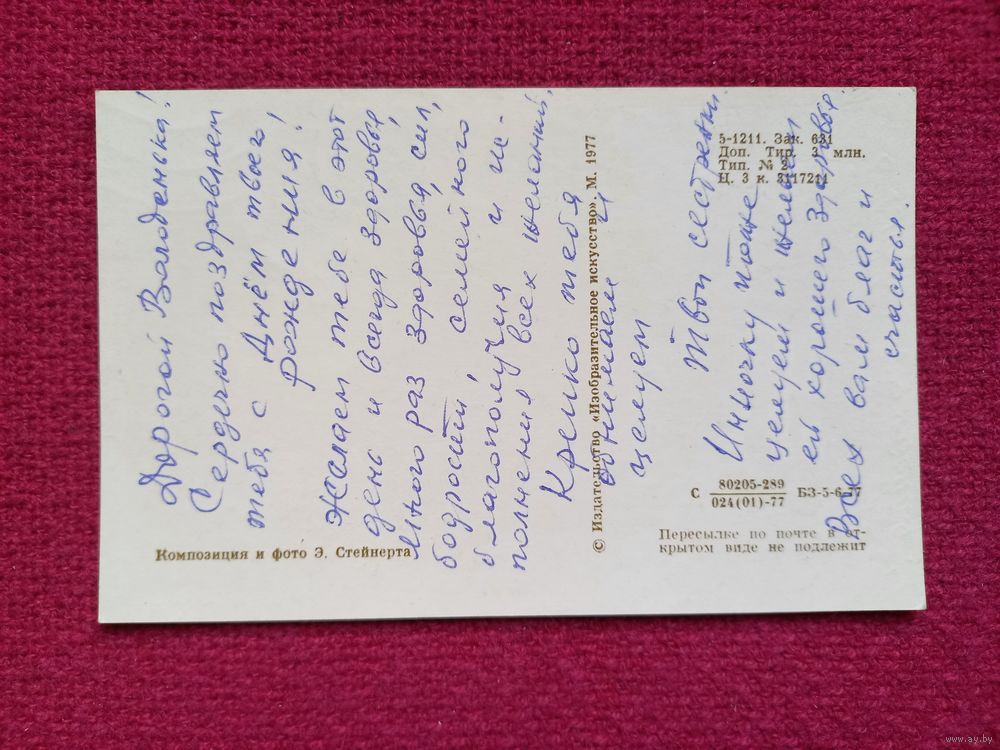 Дорогой Валоденька!
Сердечно поздравляем
тебя с Днём твоего
рождения!
Желаем тебе в этот
день и всегда здоровья,
много раз здоровья, сил,
бодрости, семейного
благополучия и ис-
полнения всех желаний.
Крепко тебя
обнимаем и
целуем
Твои сестрёнки.
Инночку тоже
целуем и желаем
ей хорошего здоровья.
Всех вам благ и
счастья.
5-1211. Зак. 631
Доп. Тир. 3 млн.
Тип. № 2
Ц. 3 к. 3117211
© Издательство «Изобразительное искусство». М. 1977
С 80205-289
024(01)-77 БЗ-5-6-77
Пересылке по почте в от-
крытом виде не подлежит
Композиция и фото Э. Стейнерта
www.ay.by